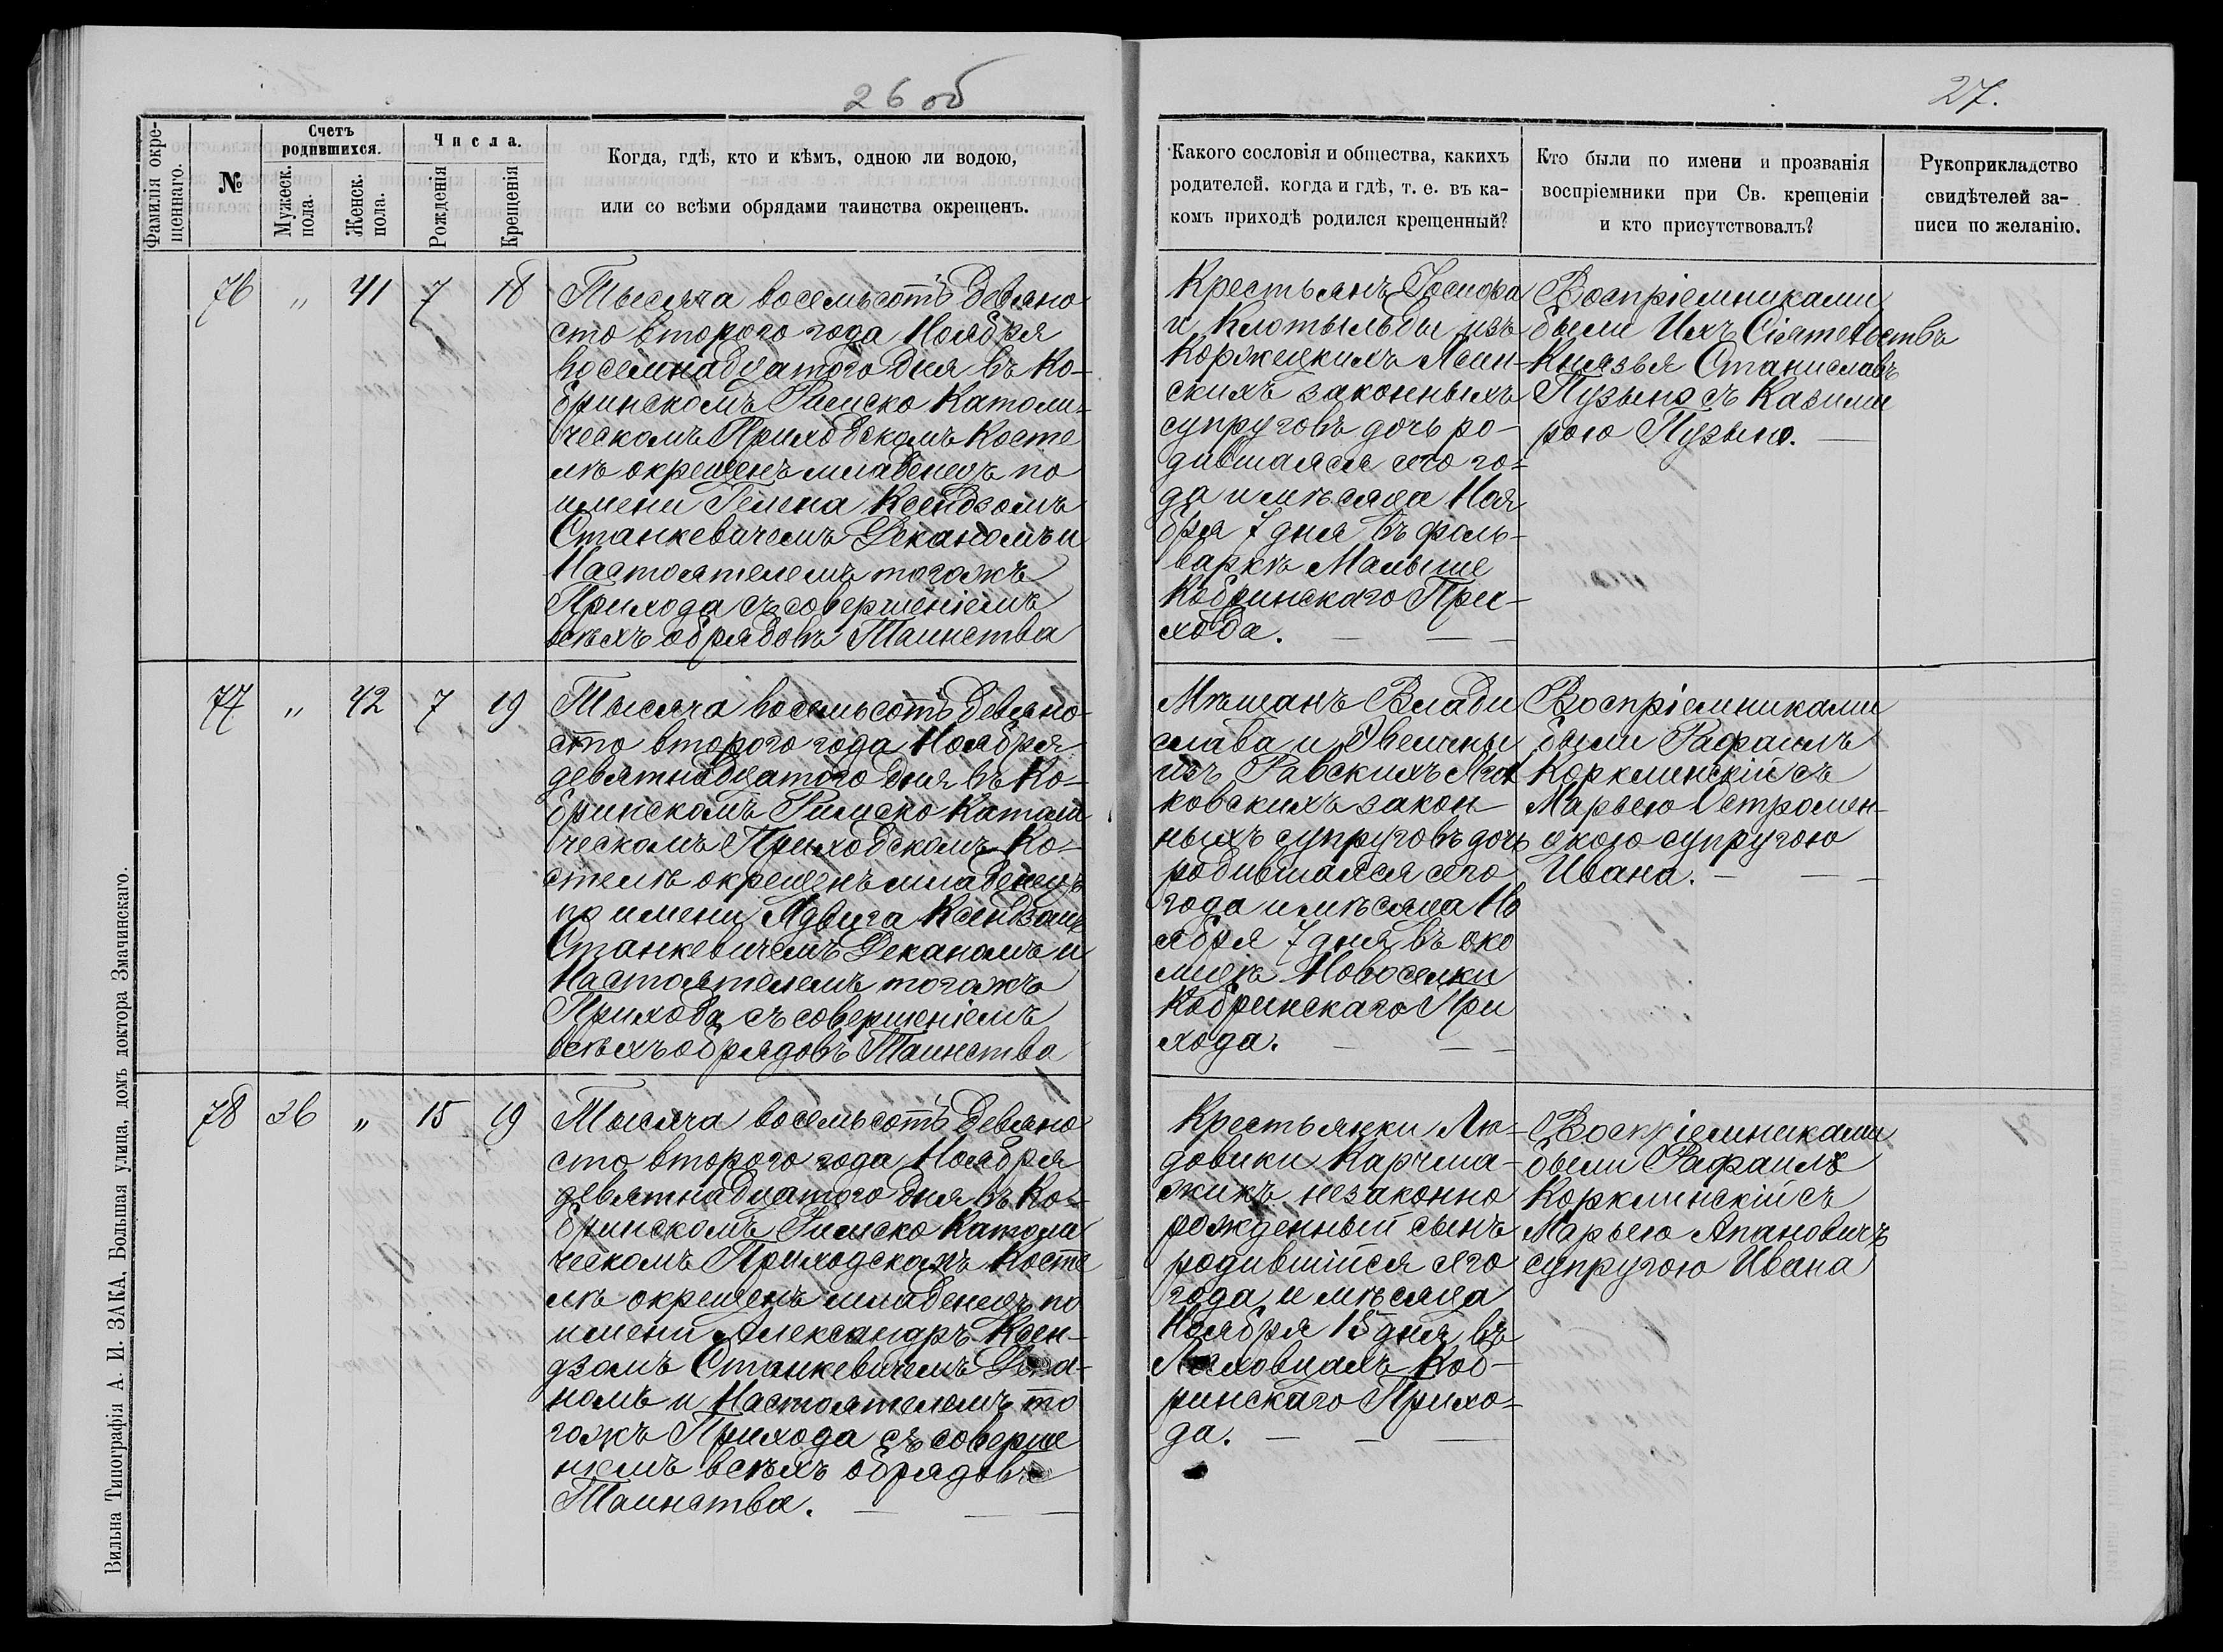 26 об
27.
Фамилія окре-
щеннаго.
№
Счетъ
родившихся.
Мужеск.
пола.
Женск.
пола.
Числа.
Рожденія
Крещенія
Когда, гдѣ, кто и кѣмъ, одною ли водою,
или со всѣми обрядами таинства окрещенъ.
Какого сословія и общества, какихъ
родителей, когда и гдѣ, т. е. въ ка-
комъ приходѣ родился крещенный?
Кто были по имени и прозванія
воспріемники при Св. крещеніи
и кто присутствовалъ?
Рукоприкладство
свидѣтелей за-
писи по желанію.
76 " 41 7 18
Тысяча восемьсотъ девяно
сто второго года Ноября
восемнадцатого дня въ Ко-
бринскомъ Римско Католи-
ческомъ Приходскомъ Косте
лѣ окрещенъ младенецъ по
имени Гелена Ксендзомъ
Станкевичемъ Деканомъ и
Настоятелемъ тогожъ
Прихода съ совершеніемъ
всѣхъ обрядовъ Таинства
Крестьянъ Іосифа
и Клотыльды изъ
Коржицкихъ Ясин-
скихъ законныхъ
супруговъ дочь ро-
дившаяся сего го-
да и мѣсяца Ноя
бря 7 дня въ фоль-
варкѣ Малыше
Кобринскаго При-
хода.
Воспріемниками
были Ихъ Сіятельствъ
Князья Станиславъ
Пузыно съ Казими
рою Пузыно.
77 " 42 7 19
Тысяча восемьсотъ девяно-
сто второго года Ноября
девятнадцатого дня въ Ко-
бринскомъ Римско Катали
ческомъ Приходскомъ Ко-
стелѣ окрещенъ младенецъ
по имени Ядвига Ксендзомъ
Станкевичемъ Деканомъ и
Настоятелемъ тогожъ
Прихода съ совершеніемъ
всѣхъ обрядовъ Таинства
Мѣщанъ Влади
слава и Эвелины
изъ Равскихъ
ковскихъ закон
ныхъ супруговъ дочь
родившаяся сего
года и мѣсяца Но
ября 7 дня въ око
лицѣ Новоселки
Кобринскаго При
хода.
Воспріемниками
были Рафаилъ
Корклинскій съ
Марьею Остромен-
цкою супругою
Ивана.
78 36 " 15 19
Тысяча восемьсотъ девяно
сто второго года Ноября
девятнадцатого дня въ Ко-
бринскомъ Римско Католи
ческомъ Приходскомъ Косте
лѣ окрещенъ младенецъ по
имени Александръ Ксен-
дзомъ Станкевичемъ Дека-
номъ и Настоятелемъ то
гожъ Прихода съ соверше
ніемъ всѣхъ обрядовъ
Таинства.
Крестьянки Лю-
довики Карчма-
жикъ незаконно
рожденный сынъ
родившійся сего
года и мѣсяца
Ноября 15 дня въ
Ляховцахъ Коб-
ринскаго Прихо-
да.
Воспріемниками
были Рафаилъ
Корклинскій съ
Марьею Апановичъ
супругою Ивана
Вильна Типографія А. И. ЗАКА, Большая улица, домъ доктора Змачинскаго.